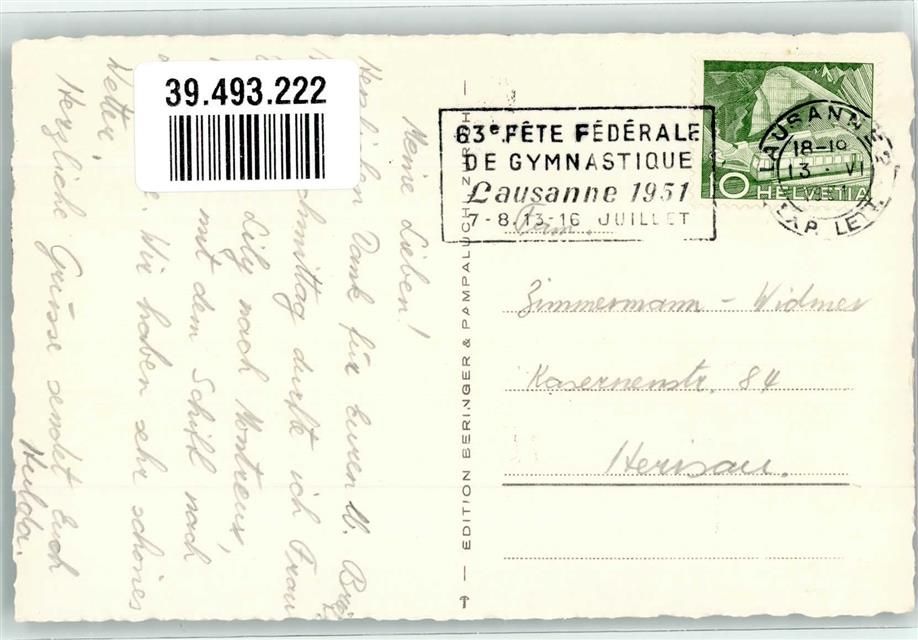 39.493.222
Meine Lieben!
Herzlichen Dank für Euren lb. Brief
chmittag durfte ich Frau
Lily nach Montreux,
mit dem Schiff nach
Wir haben sehr schönes
Wetter,
Herzliche Grüsse sendet Euch
Hulda.
EDITION BERINGER & PAMPALUCHI ZÜRICH
63e FÊTE FÉDÉRALE
DE GYMNASTIQUE
Lausanne 1951
7-8.13-16 JUILLET
LAUSANNE
18-19
13. VI
EXP. LETT.
10 HELVETIA
Fam.
Zimmermann - Widmer
Kasernenstr. 84
Herisau.